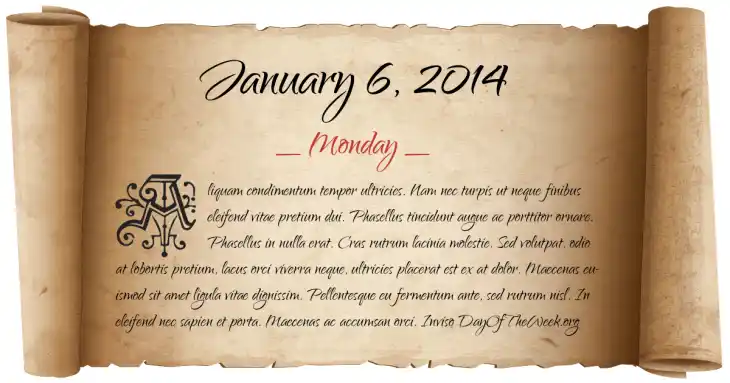 January 6, 2014
_ Monday _
Aliquam condimentum tempor ultricies. Nam nec turpis ut neque finibus
eleifend vitae pretium dui. Phasellus tincidunt augue ac porttitor ornare.
Phasellus in nulla erat. Cras rutrum lacinia molestie. Sed volutpat, odio
at lobortis pretium, lacus orci viverra neque, ultricies placerat est ex at dolor. Maecenas eu-
ismod sit amet ligula vitae dignissim. Pellentesque eu fermentum ante, sed rutrum nisl. In
eleifend nec sapien et porta. Maecenas ac accumsan orci. Inviso DayOfTheWeek.org